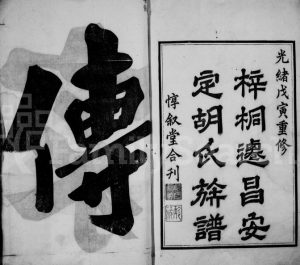 光緒戊寅重修
梓桐遷昌安
定胡氏族譜
惇叙堂合刊
傳